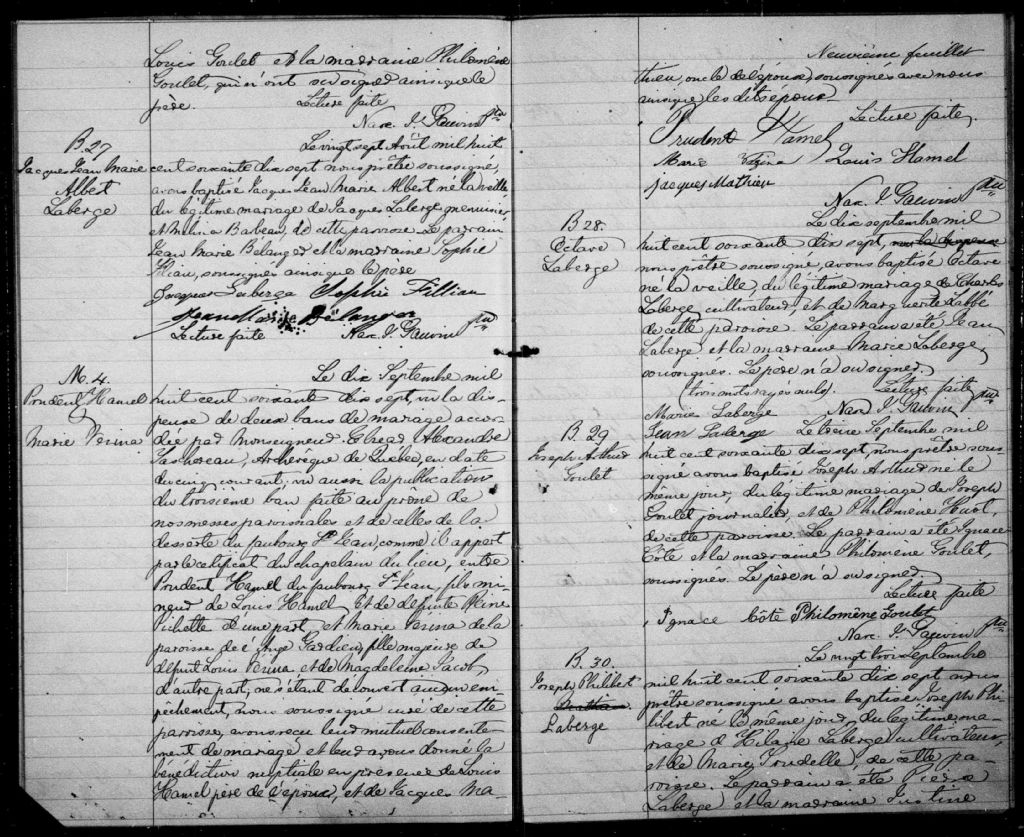 Louis Goulet et la marraine Philomène
Goulet, qui n'ont su signer ainsi que le
père. Lecture faite
Nar. J. Gauvin Ptre
B. 27
Jacques Jean Marie
Albert
Laberge
Le vingt sept Août mil huit
cent soixante dix sept nous prêtre soussigné,
avons baptisé Jacques Jean Marie Albert né la veille
du légitime mariage de Jacques Laberge menuisier
et Mélina Barbeau, de cette paroisse. Le parrain
Jean Marie Bélanger et la marraine Sophie
soussignés ainsi que le père
Jacques Laberge Sophie Fillian
Jean Marie Bélanger
Lecture faite Nar. J. Gauvin Ptre
M. 4.
Prudent Hamel
&
Marie Vesina
Le dix Septembre mil
huit cent soixante dix sept, vu la dis-
pense de deux bans de mariage accor-
dée par Monseigneur Elzear Alexandre
Taschereau, Archevêque de Québec, en date
du cinq courant; vu aussi la publication
du troisième ban faite au prône de
nos messes paroissiales et de celles de la
desserte du faubourg St Jean, comme il appert
par le certificat du chapelain du lieu, entre
Prudent Hamel du faubourg St Jean, fils mi-
neur de Louis Hamel et de défunte Reine
Pichette d'une part et Marie Vesina de la
paroisse de l'Ange Gardien, fille majeure de
défunt Louis Vesina et de Magdeleine Jacob,
d'autre part, ne s'étant découvert aucun em-
pêchement, nous soussigné curé de cette
paroisse, avons reçu leur mutuel consente-
ment de mariage et leur avons donné la
bénédiction nuptiale en présence de Louis
Hamel père de l'époux, et de Jacques Ma-
Neuvième feuillet
thieu, oncle de l'épouse, soussignés avec nous
ainsi que les dits époux
Lecture faite,
Prudent Hamel
Marie Vezina Louis Hamel
jacques Mathieu
Nar. J. Gauvin Ptre
B 28.
Octave
Laberge
Le dix septembre mil
huit cent soixante dix sept, vu la dispense
nous prêtre soussigné, avons baptisé Octave
né la veille, du légitime mariage de Charles
Laberge, cultivateur, et de Marguerite Labbé
de cette paroisse. Le parrain a été Jean
Laberge et la marraine Marie Laberge,
soussignés. Le père n'a su signer.
(trois mots rayés nuls). Lecture faite
Marie Laberge Nar. J. Gauvin Ptre
Jean Laberge
B. 29
Joseph Arthur
Goulet
Le treize Septembre mil
huit cent soixante dix sept, nous prêtre sous-
signé avons baptisé Joseph Arthur né le
même jour, du légitime mariage de Joseph
Goulet journalier, et de Philomène Huot,
de cette paroisse. Le parrain a été Ignace
Côté et la marraine Philomène Goulet,
soussignés. Le père n'a su signer.
Lecture faite
Ignace Côté Philomène Goulet
Nar. J. Gauvin Ptre
B. 30.
Joseph Philibert
Laberge
Le vingt trois Septembre
mil huit cent soixante dix sept nous
prêtre soussigné avons baptisé Joseph Phi-
libert né le même jour, du légitime ma-
riage d'Hilaire Laberge cultivateur,
et de Marie Trudelle, de cette pa-
roisse. Le parrain a été Pierre
Laberge et la marraine Justine